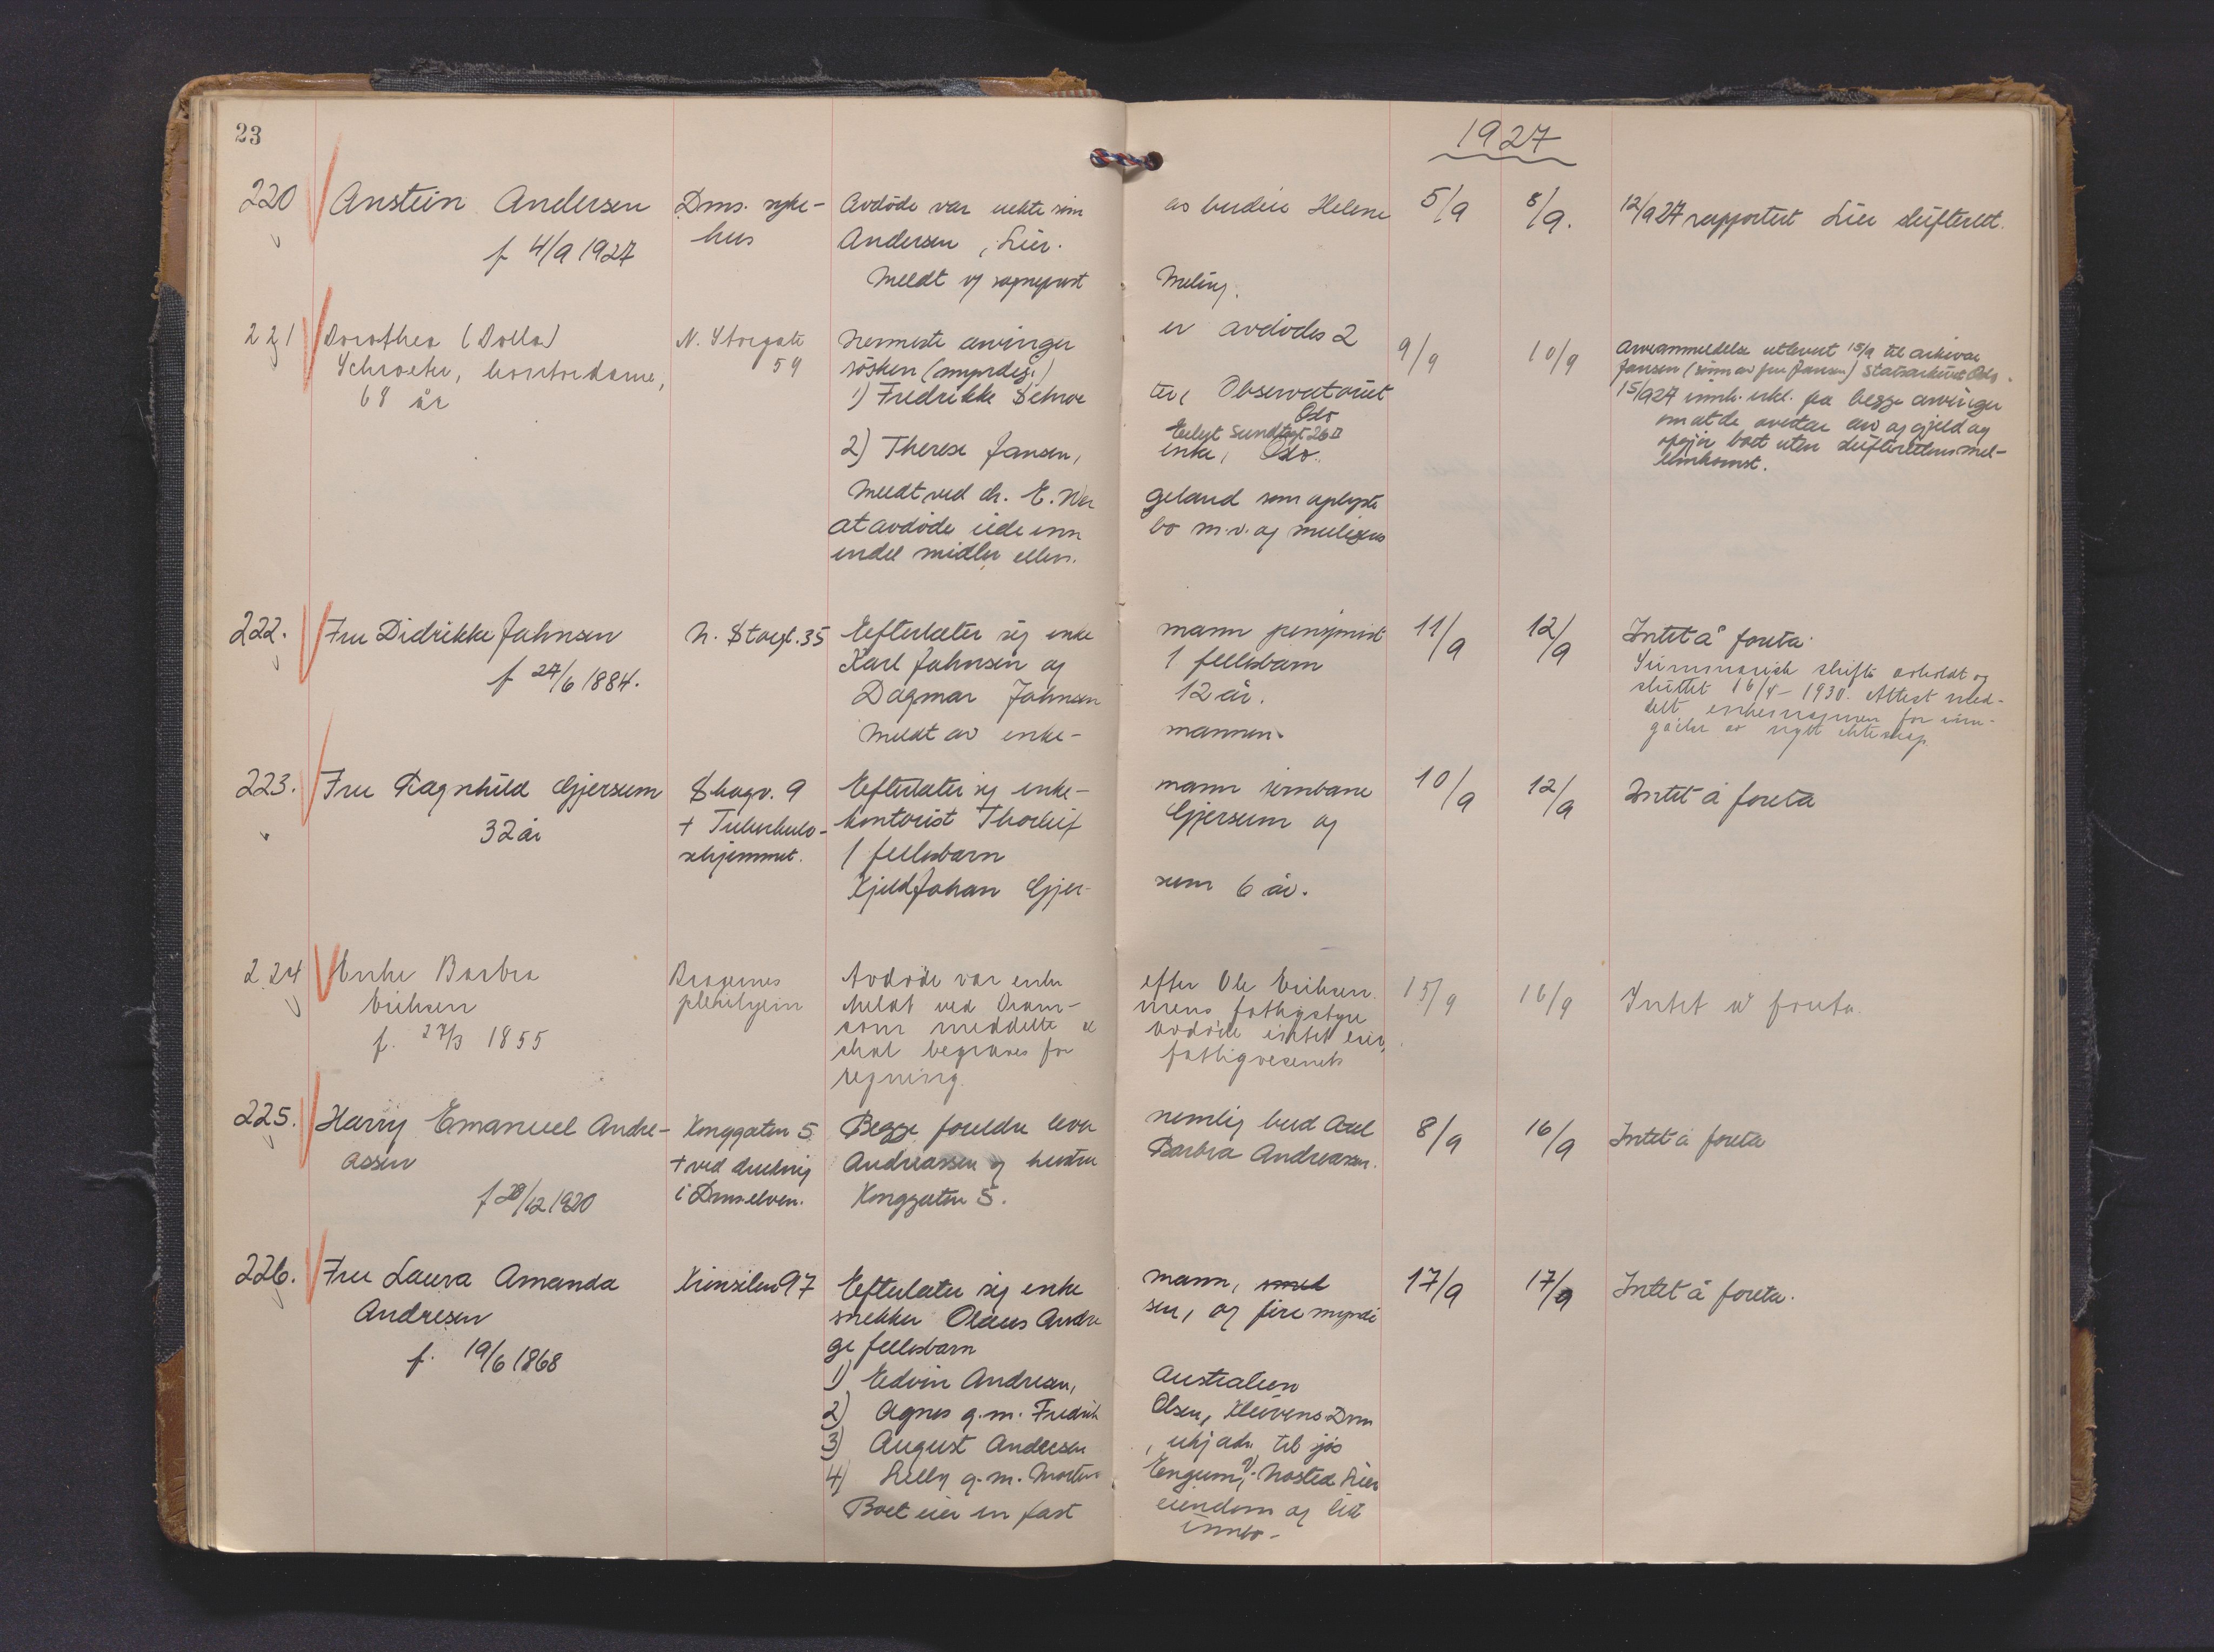 23
1927
220 Anstein Andersen
f 4/9 1927
Dms. syke-
hus
Avdöde var uekte sön av budeie Helene
Andersen, Lier.
Meldt av sogneprest Meling.
5/9 8/9. 12/9 27 rapportert Lier skifterett.
221 Dorothea (Dolla)
Schroeter, kontordame,
68 år
N. Storgate
59
Nermeste arvinger er avdödes 2
sösken (myndig.)
1) Fredrikke Schroeter, Observatoriet
Oslo
Eilert Sundtsgt 26 II
2) Therese Jansen, enke, Oslo.
Meldt ved dr. E. Wergeland som oplyste
at avdöde eide innbo m.v. og muligens
endel midler ellers.
9/9 10/9
Arveanmeldelse utlevert 15/9 til arkivar
Jansen (sönn av fru Jansen) Statsarkivet Oslo.
15/9 27 innk. erkl. fra begge arvinger
om at de overtar arv og gjeld og
opgjör boet uten skifterettens mel-
lemkomst.
222. Fru Didrikke Johnsen
f 24/6 1884.
N. Storgt. 35
Efterlater sig enkemann
Karl Johnsen og 1 fellesbarn
Dagmar Johnsen 12 år.
Meldt av enke- mannen.
11/9 12/9 Intet å foreta.
Summarisk skifte avholdt og
sluttet 16/4 - 1930. Attest med-
delt enkemannen for inn-
gåelse av nytt ekteskap.
223. Fru Ragnhild Gjersum
32 år
Skogv. 9
+ Tuberkulo-
sehjemmet.
Efterlater sig enke- mann jernbane
kontorist Thorleif Gjersum og
1 fellesbarn
Kjeld Johan Gjer- sum 6 år.
10/9 12/9 Intet å foreta
224 Enke Barbra
Eriksen
f. 27/3 1855
Bragernes
pleiehjem
Avdöde var enke efter Ole Eriksen.
Meldt ved Dram- mens fattigstyre
som meddelte at avdöde intet eier,
skal begraves for fattigvesenets
regning.
15/9 16/9 Intet å foreta.
225. Harry Emanuel Andre-
assen
f 28/12 1920
Konggaten 5
+ ved drukning
i Dmselven.
Begge foreldre lever nemlig bud Axel
Andreassen og hustru Barbra Andreassen.
Konggaten 5.
8/9 16/9 Intet å foreta
226. Fru Laura Amanda
Andresen
f. 19/6 1868
Efterlater sig enke mann, smed
snekker Olaus Andresen, og fire myndi
ge fellesbarn
1) Edvin Andresen, Australien
2) Agnes g.m. Fredrik Olsen, Kleivens Dmn
3) August Andresen, ukj adr. til sjös
4) Lilly g.m. Morten Engum, Nösted Lier
Boet eier en fast eiendom og litt
innbo -
17/9 17/9 Intet å foreta.